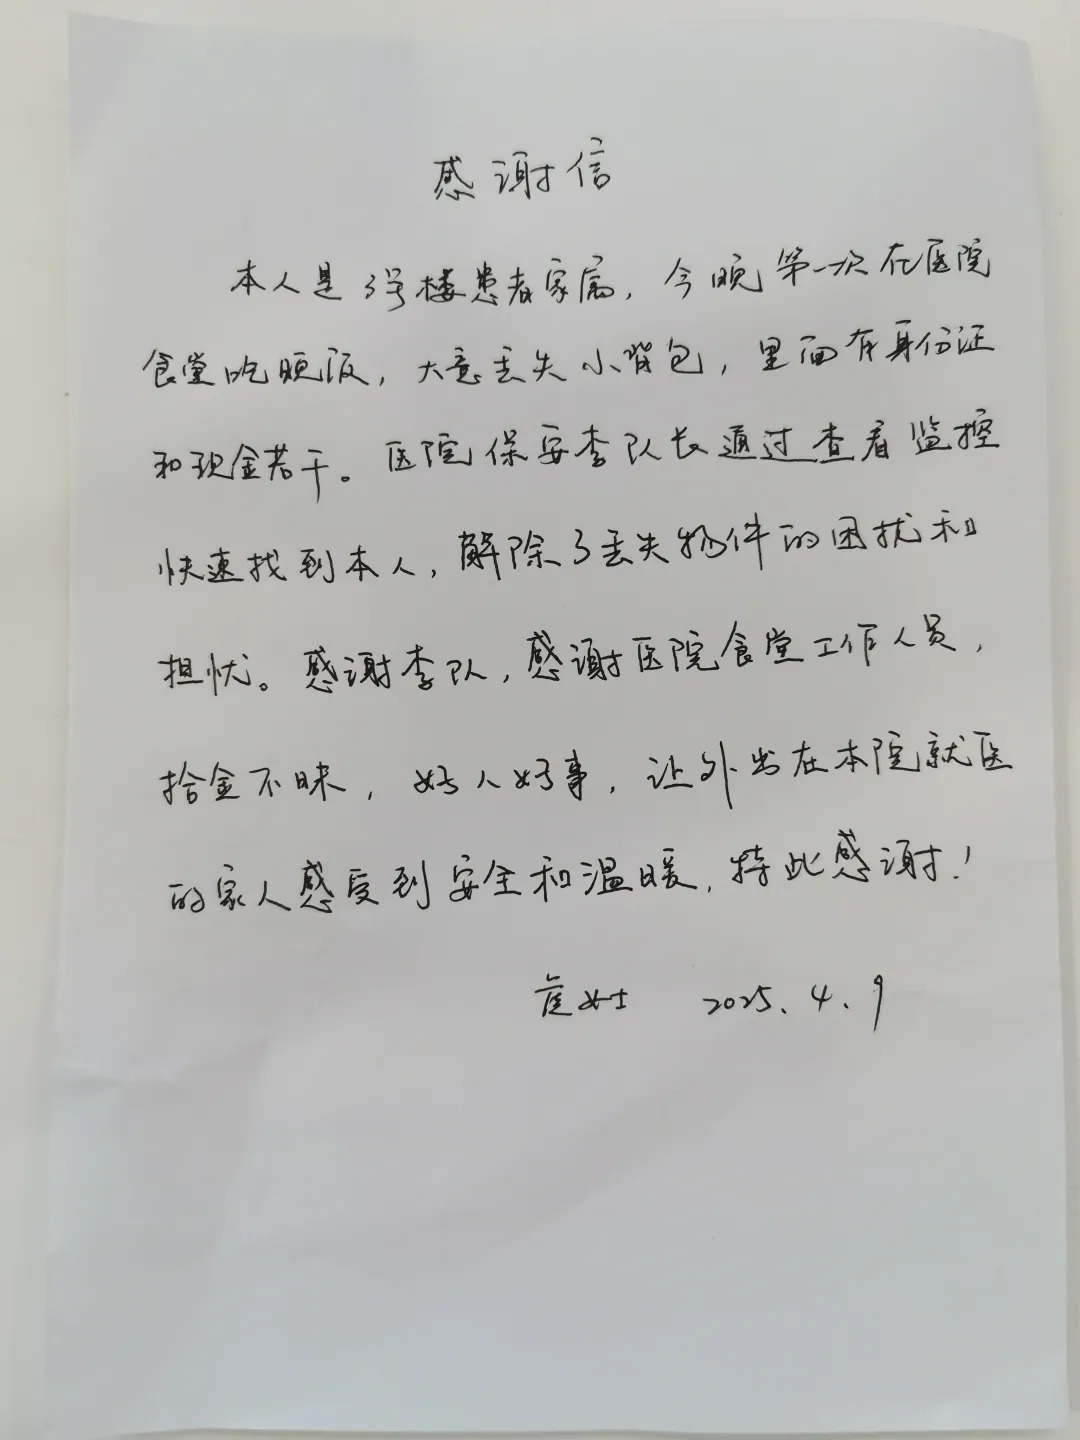 感谢信
本人是3号楼患者家属，今晚第一次在医院
食堂吃晚饭，大意丢失小背包，里面有身份证
和现金若干。医院保安李队长通过查看监控
快速找到本人，解除了丢失物件的困扰和
担忧。感谢李队，感谢医院食堂工作人员，
拾金不昧，好人好事，让外出在本院就医
的家人感受到安全和温暖，特此感谢！
女士 2025.4.9